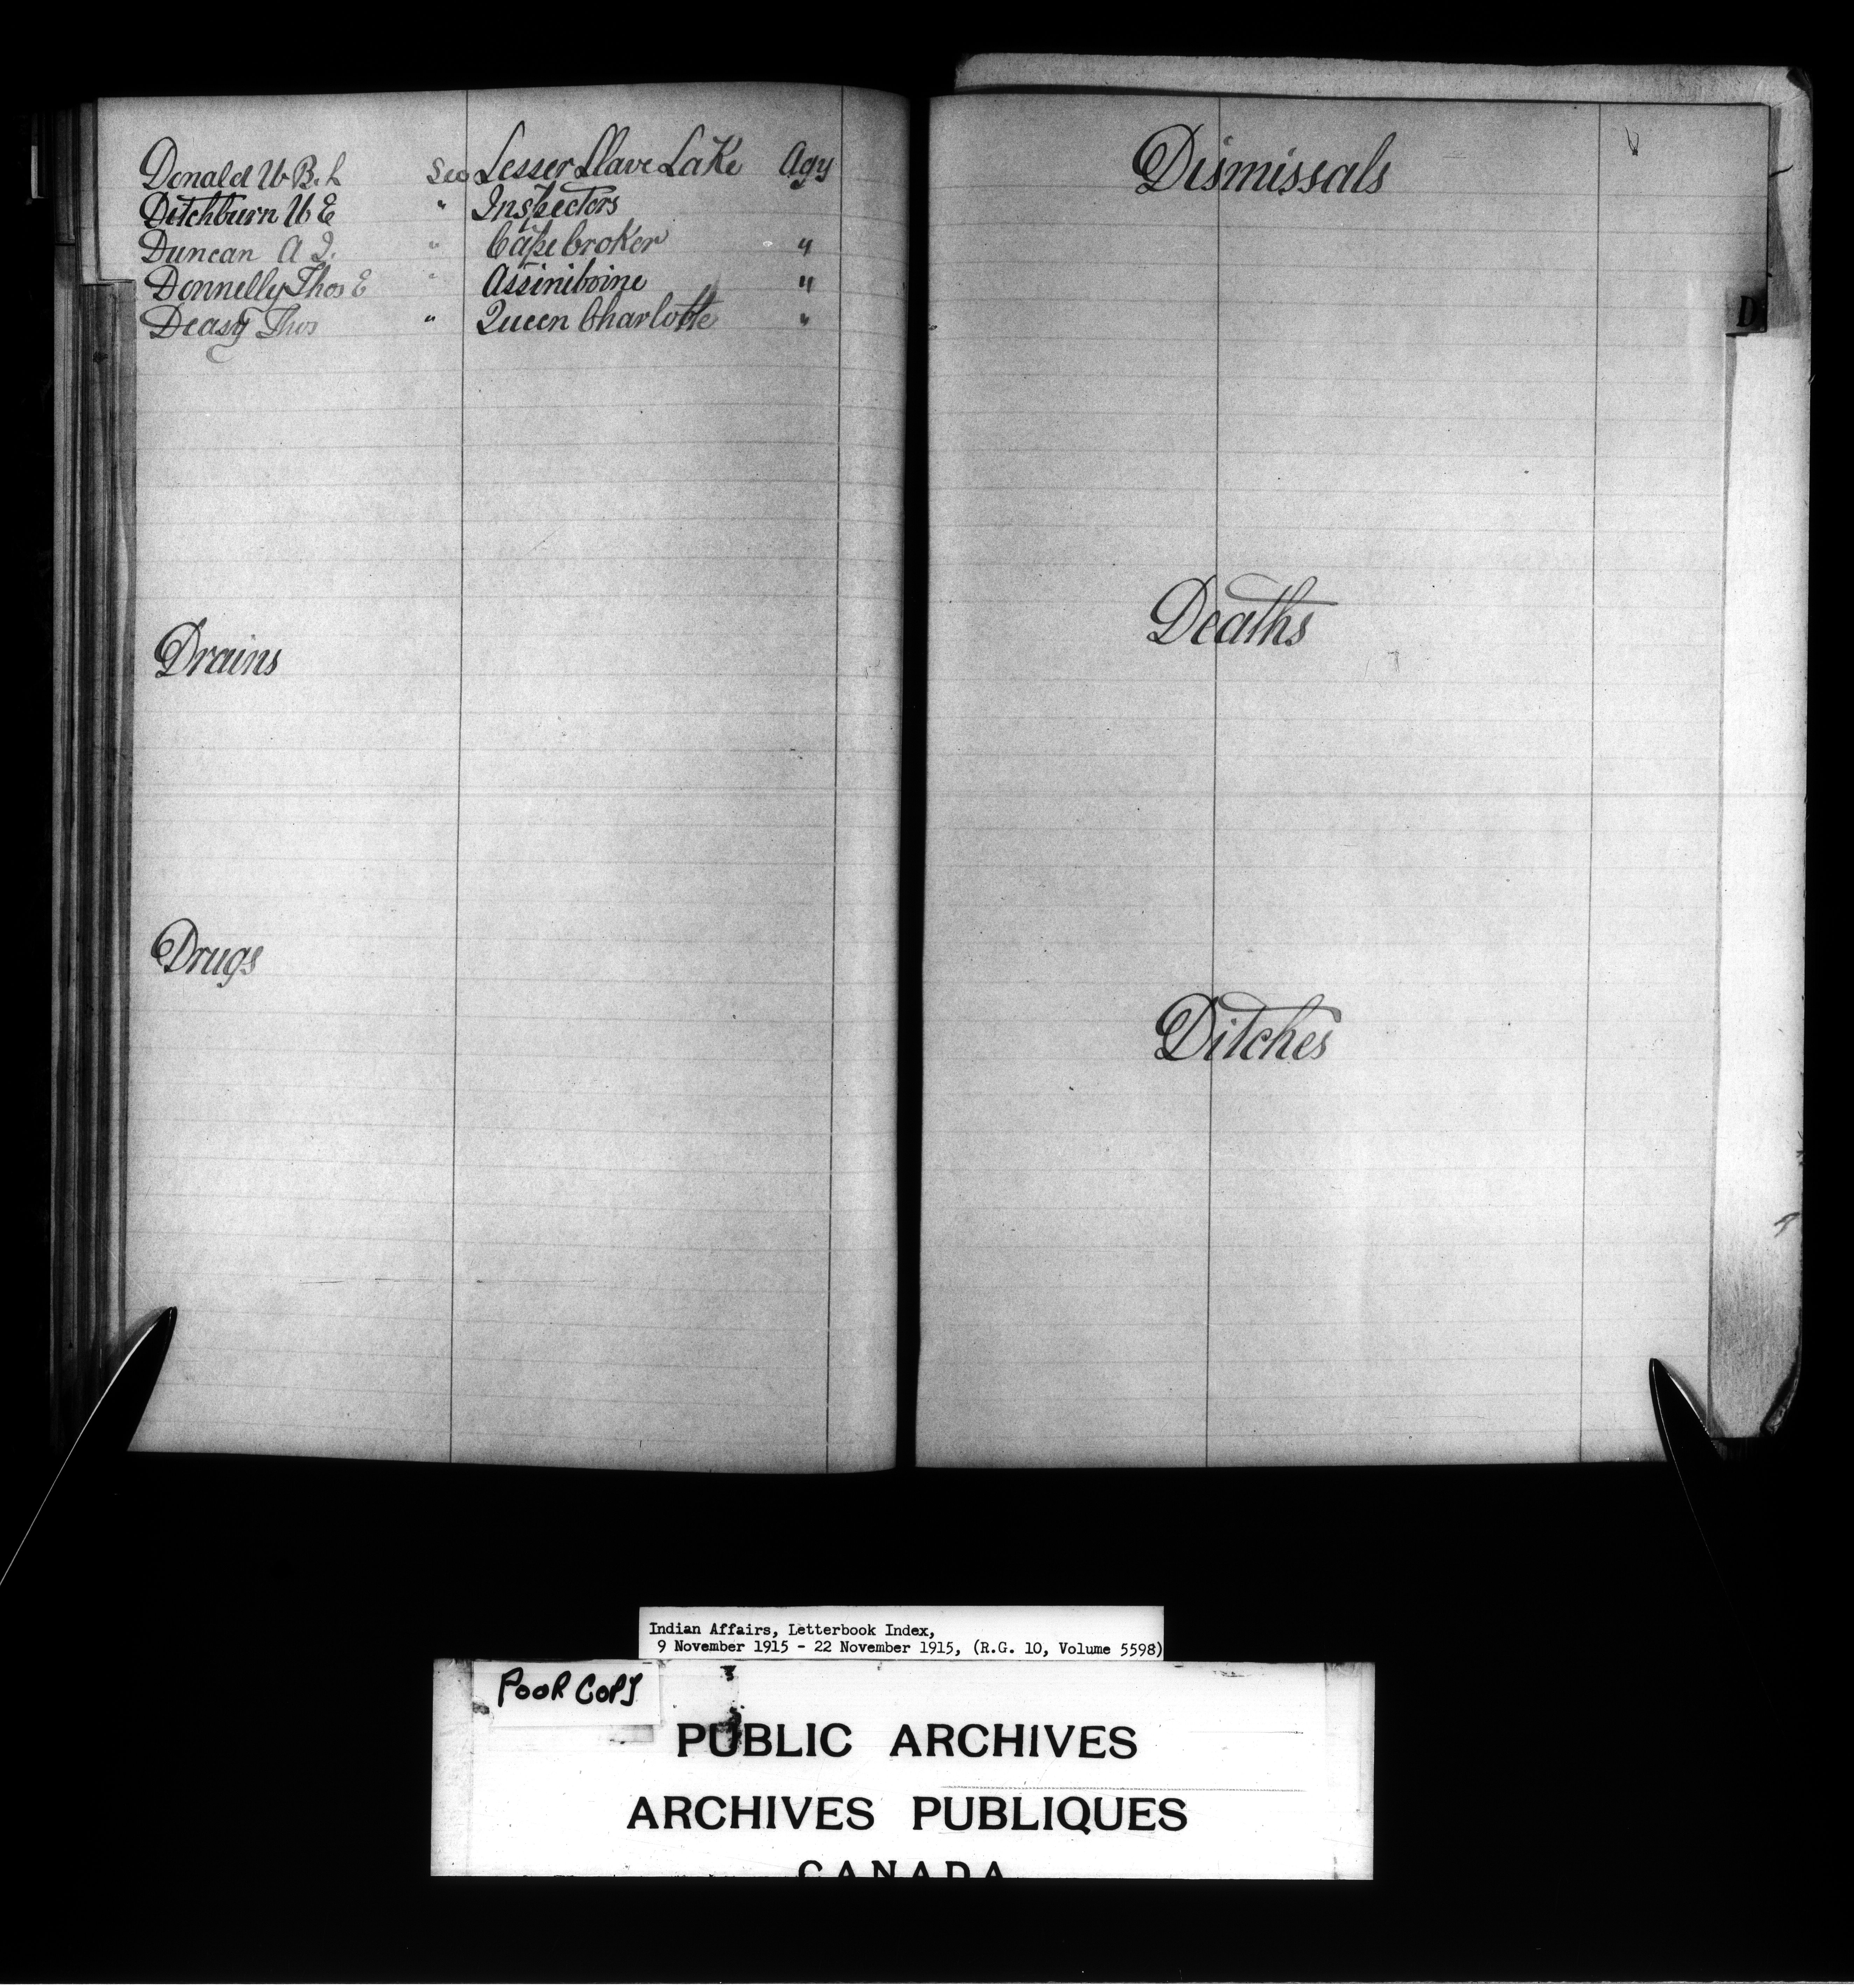 Donald W. B. L See Lesser Slave Lake Agy
Ditchburn W E " Inspectors
Duncan A I. " Cape Croker "
Donnelly Thos E " Assiniboine "
Deasy Thos " Queen Charlotte "
Drains
Drugs
Dismissals
D
Deaths
Ditches
Indian Affairs, Letterbook Index,
9 November 1915 - 22 November 1915, (R.G. 10, Volume 5598)
POOR COPY
PUBLIC ARCHIVES
ARCHIVES PUBLIQUES
CANADA